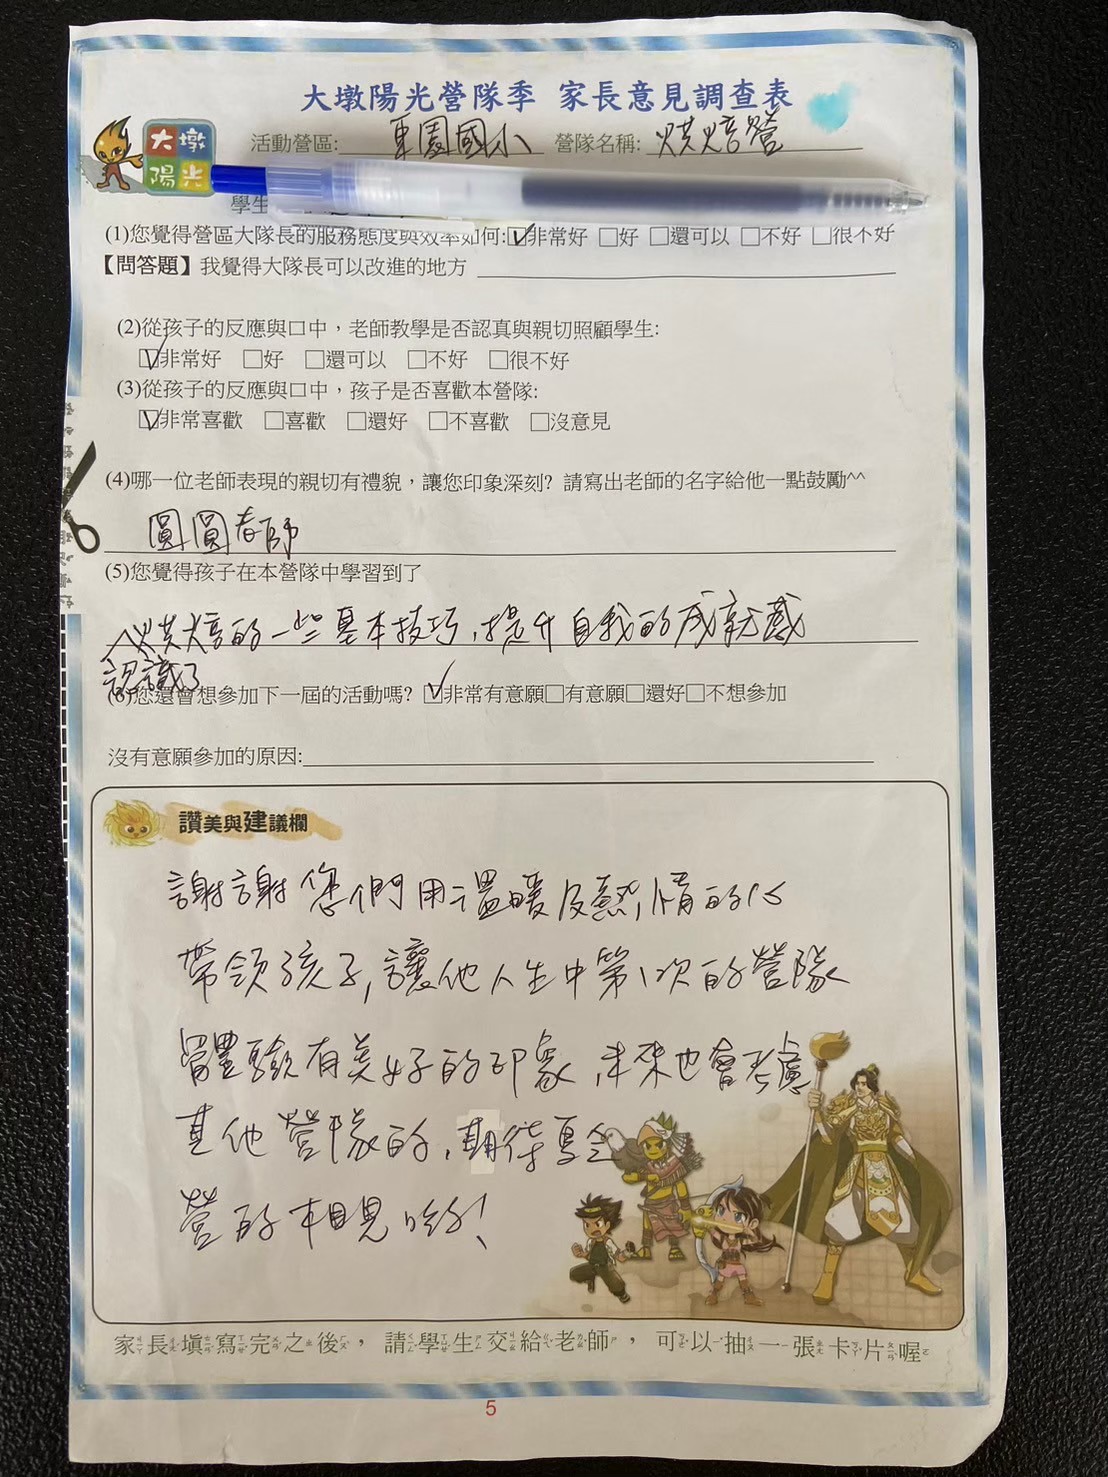 大墩陽光營隊季 家長意見調查表
大墩
陽光
活動營區: 東園國小 營隊名稱: 烘焙營
學生
(1)您覺得營區大隊長的服務態度與效率如何:☑非常好 □好 □還可以 □不好 □很不好
【問答題】我覺得大隊長可以改進的地方
(2)從孩子的反應與口中，老師教學是否認真與親切照顧學生:
☑非常好 □好 □還可以 □不好 □很不好
(3)從孩子的反應與口中，孩子是否喜歡本營隊:
☑非常喜歡 □喜歡 □還好 □不喜歡 □沒意見
(4)哪一位老師表現的親切有禮貌，讓您印象深刻? 請寫出老師的名字給他一點鼓勵^^
圓圓老師
(5)您覺得孩子在本營隊中學習到了
烘焙的一些基本技巧,提升自我的成就感
認識了
(6)您還會想參加下一屆的活動嗎? ☑非常有意願□有意願□還好□不想參加
沒有意願參加的原因:
讚美與建議欄
謝謝您們用溫暖及熱情的心
帶領孩子,讓他人生中第1次的營隊
體驗有美好的印象,未來也會考慮
其他營隊的,期待夏令
營的相見喲!
家長填寫完之後，請學生交給老師，可以抽一張卡片喔
5